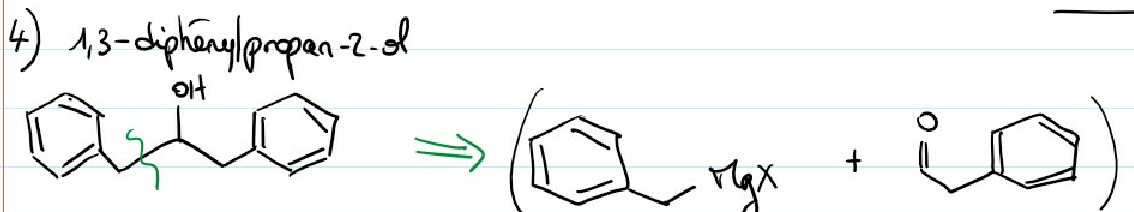 4) 1,3-diphénylpropan-2-ol
OH
O
MgX
+